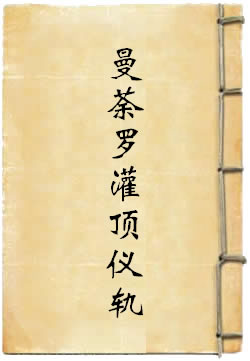 曼荼罗灌顶仪轨